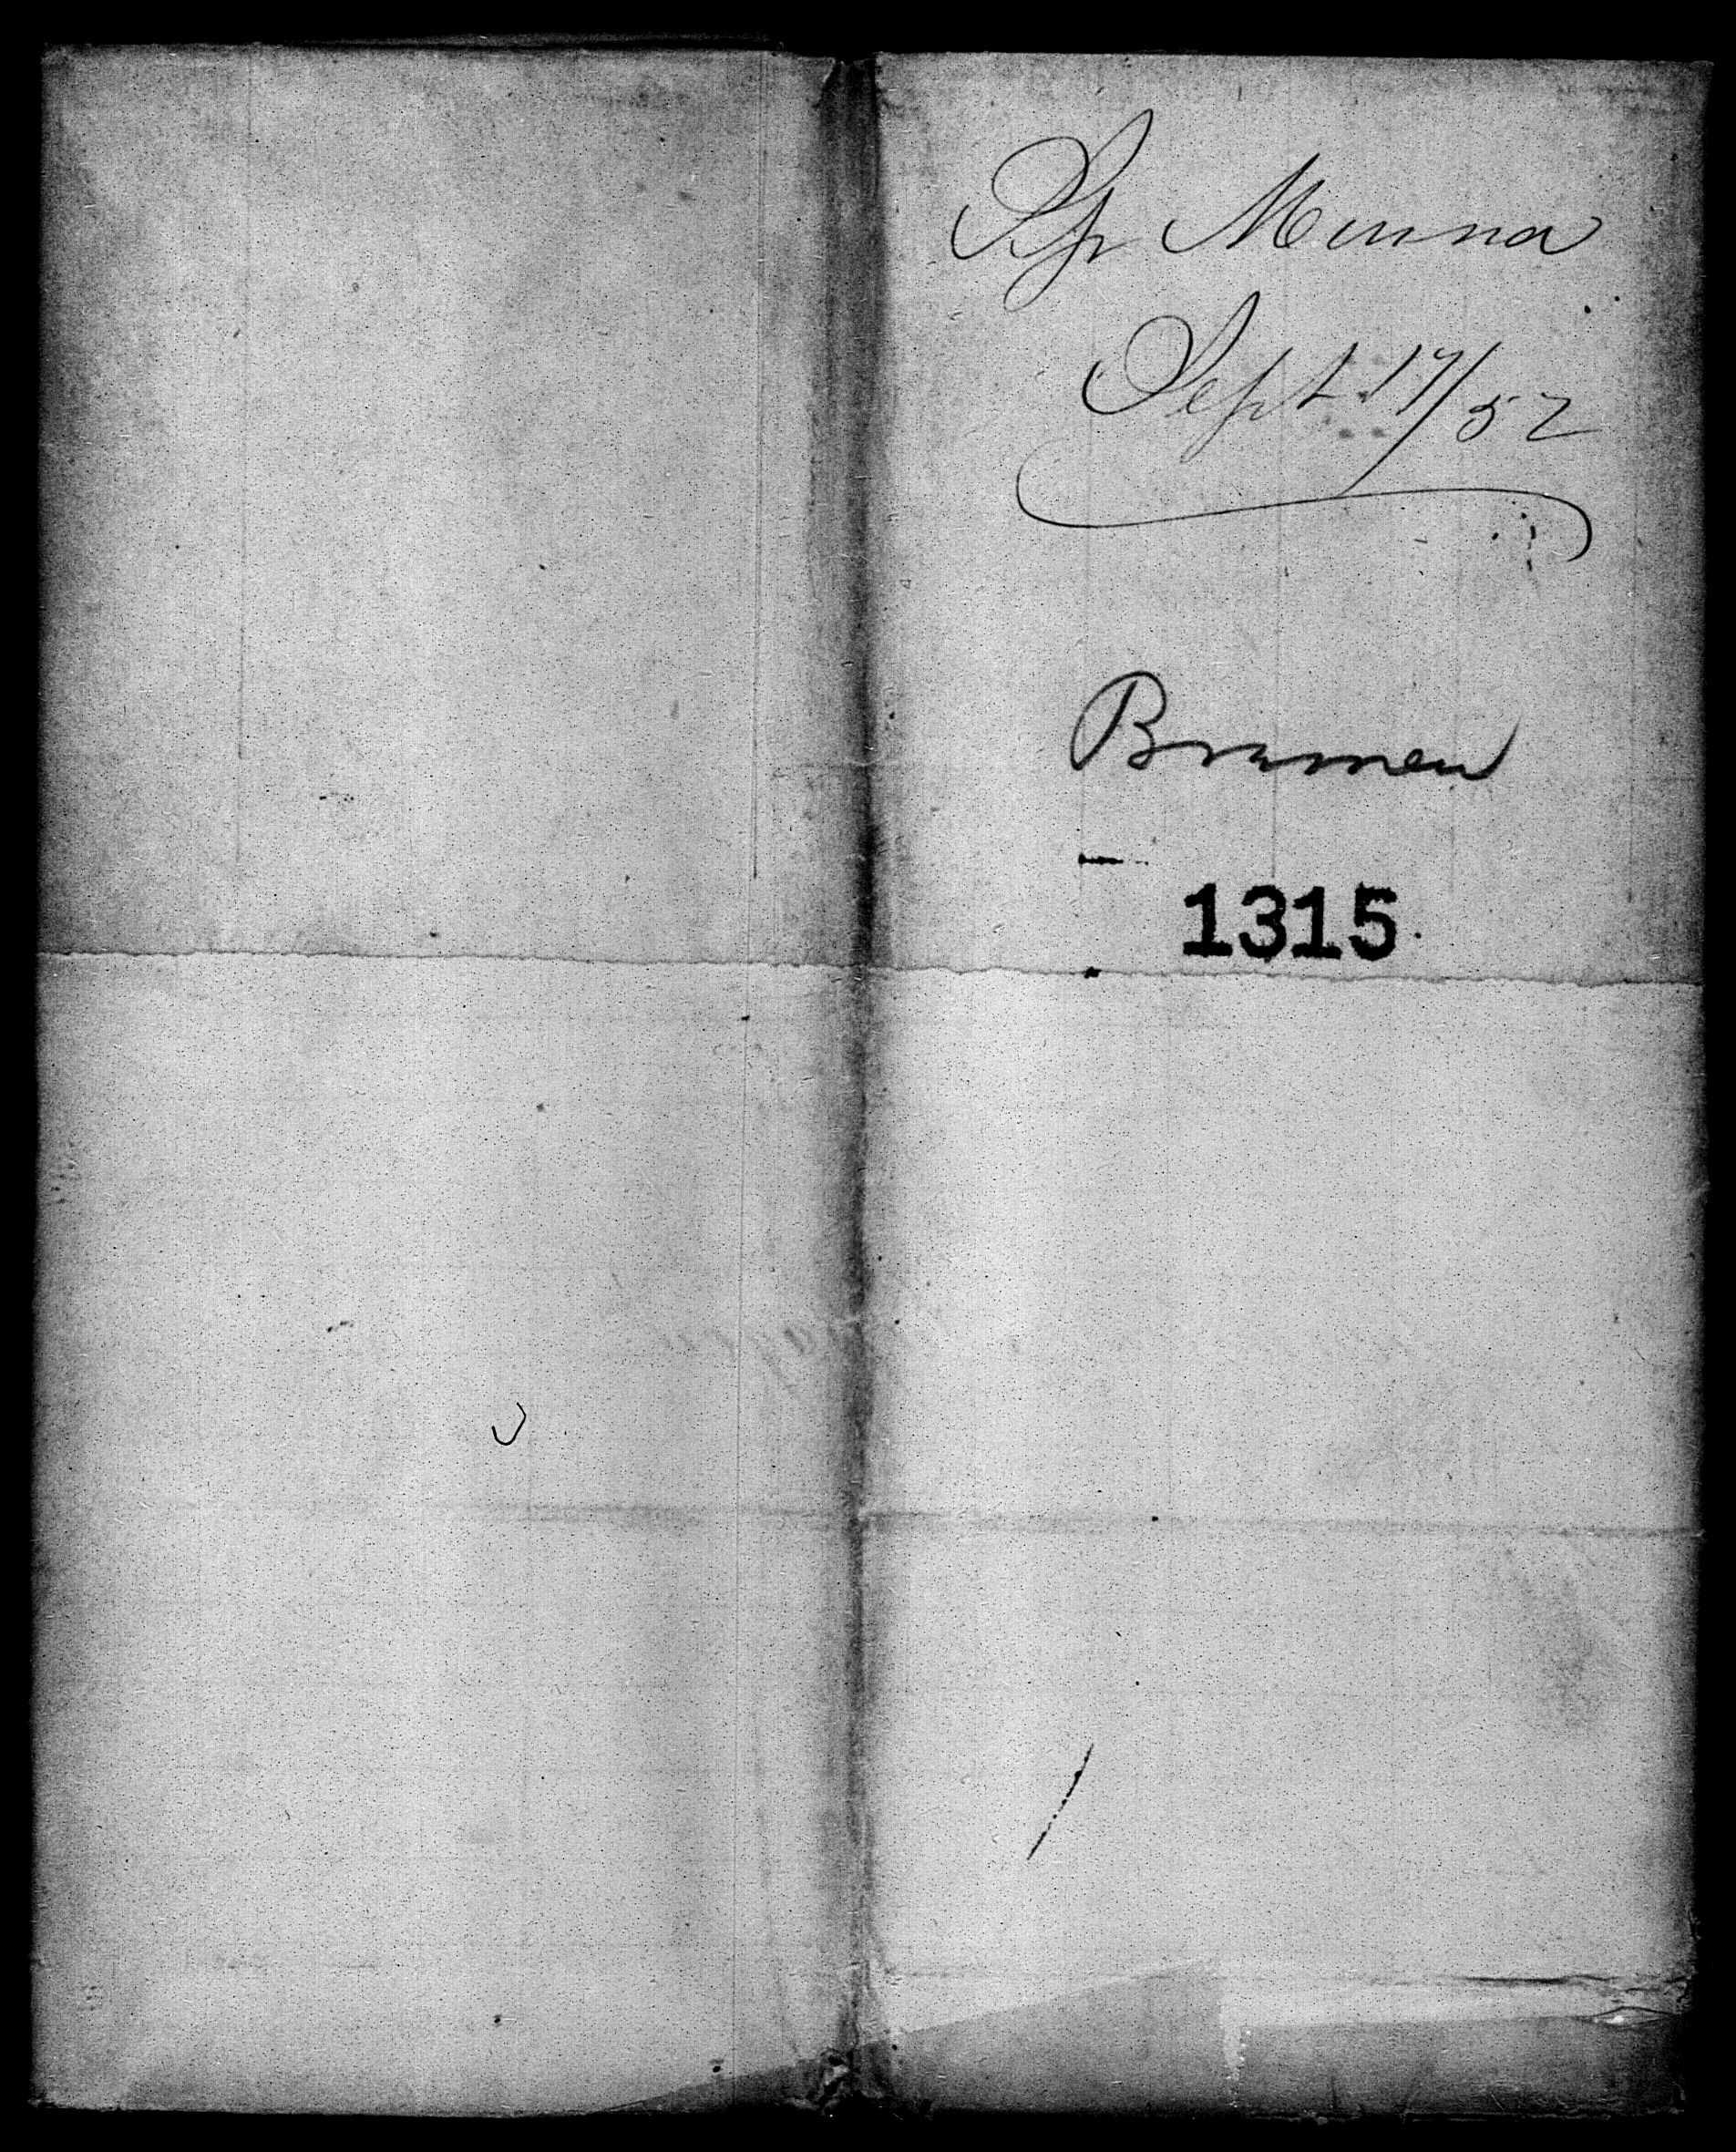 Sp Minna
Sept 17/52
Bremen
1315